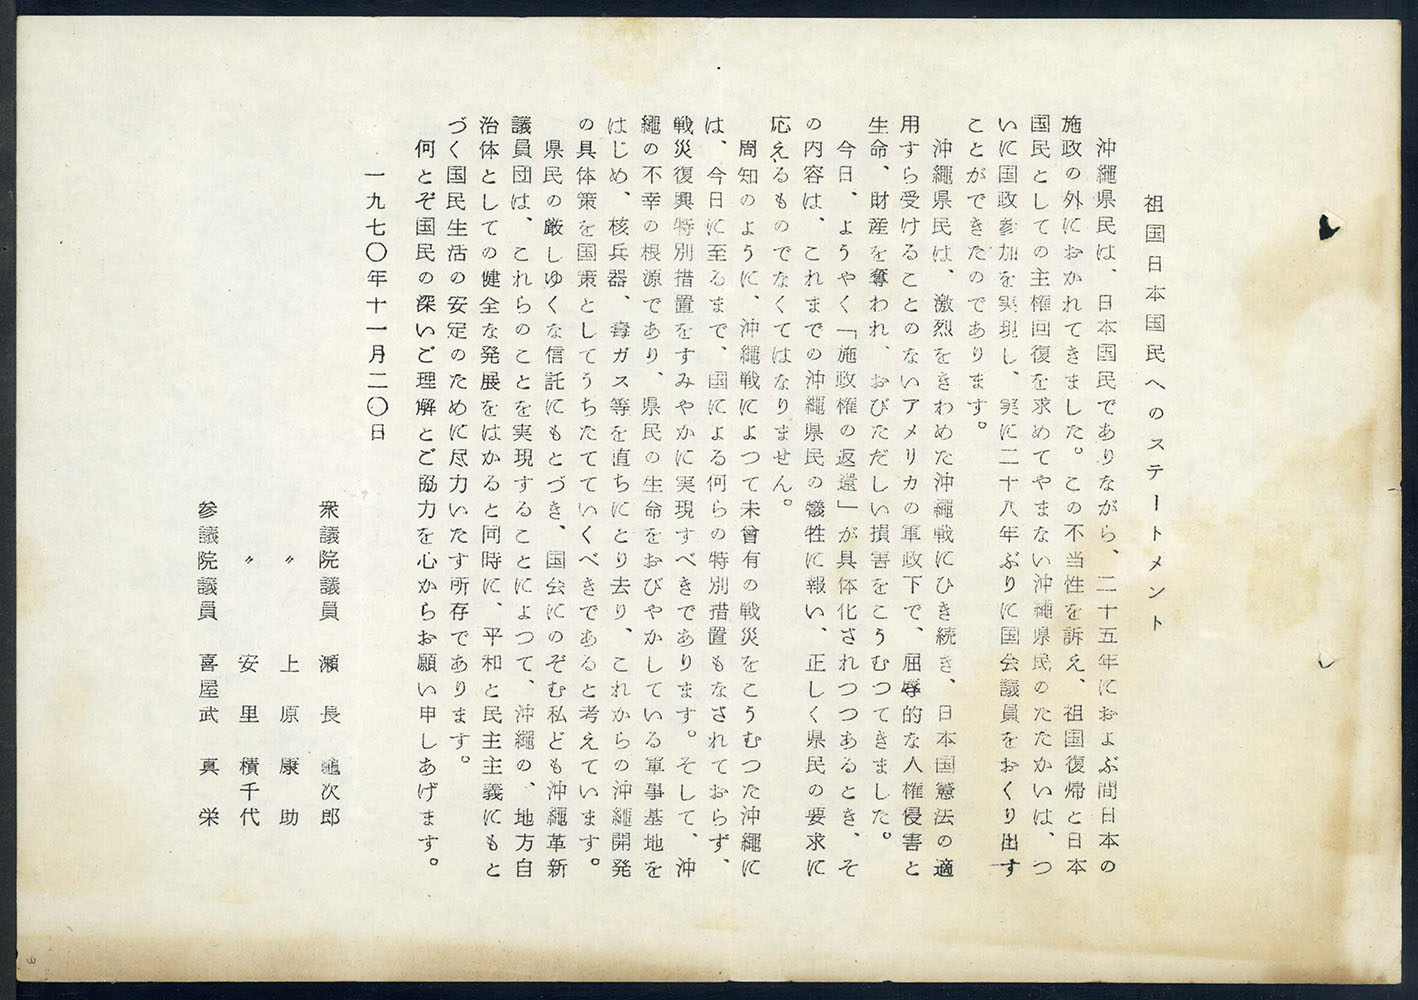 祖国日本国民へのステートメント
沖縄県民は、日本国民でありながら、二十五年におよぶ間日本の
施政の外におかれてきました。この不当性を訴え、祖国復帰と日本
国民としての主権回復を求めてやまない沖縄県民のたたかいは、つ
いに国政参加を実現し、実に二十八年ぶりに国会議員をおくり出す
ことができたのであります。
沖縄県民は、激烈をきわめた沖縄戦にひき続き、日本国憲法の適
用すら受けることのないアメリカの軍政下で、屈辱的な人権侵害と
生命、財産を奪われ、おびただしい損害をこうむつてきました。
今日、ようやく「施政権の返還」が具体化されつつあるとき、そ
の内容は、これまでの沖縄県民の犠牲に報い、正しく県民の要求に
応えるものでなくてはなりません。
周知のように、沖縄戦によつて未曾有の戦災をこうむつた沖縄に
は、今日に至るまで、国による何らの特別措置もなされておらず、
戦災復興特別措置をすみやかに実現すべきであります。そして、沖
縄の不幸の根源であり、県民の生命をおびやかしている軍事基地を
はじめ、核兵器、毒ガス等を直ちにとり去り、これからの沖縄開発
の具体策を国策としてうちたてていくべきであると考えています。
県民の厳しゆくな信託にもとづき、国会にのぞむ私ども沖縄革新
議員団は、これらのことを実現することによつて、沖縄の、地方自
治体としての健全な発展をはかると同時に、平和と民主主義にもと
づく国民生活の安定のために尽力いたす所存であります。
何とぞ国民の深いご理解とご協力を心からお願い申しあげます。
一九七〇年十一月二〇日
衆議院議員　瀬長亀次郎
〃　上原康助
〃　安里積千代
参議院議員　喜屋武真栄